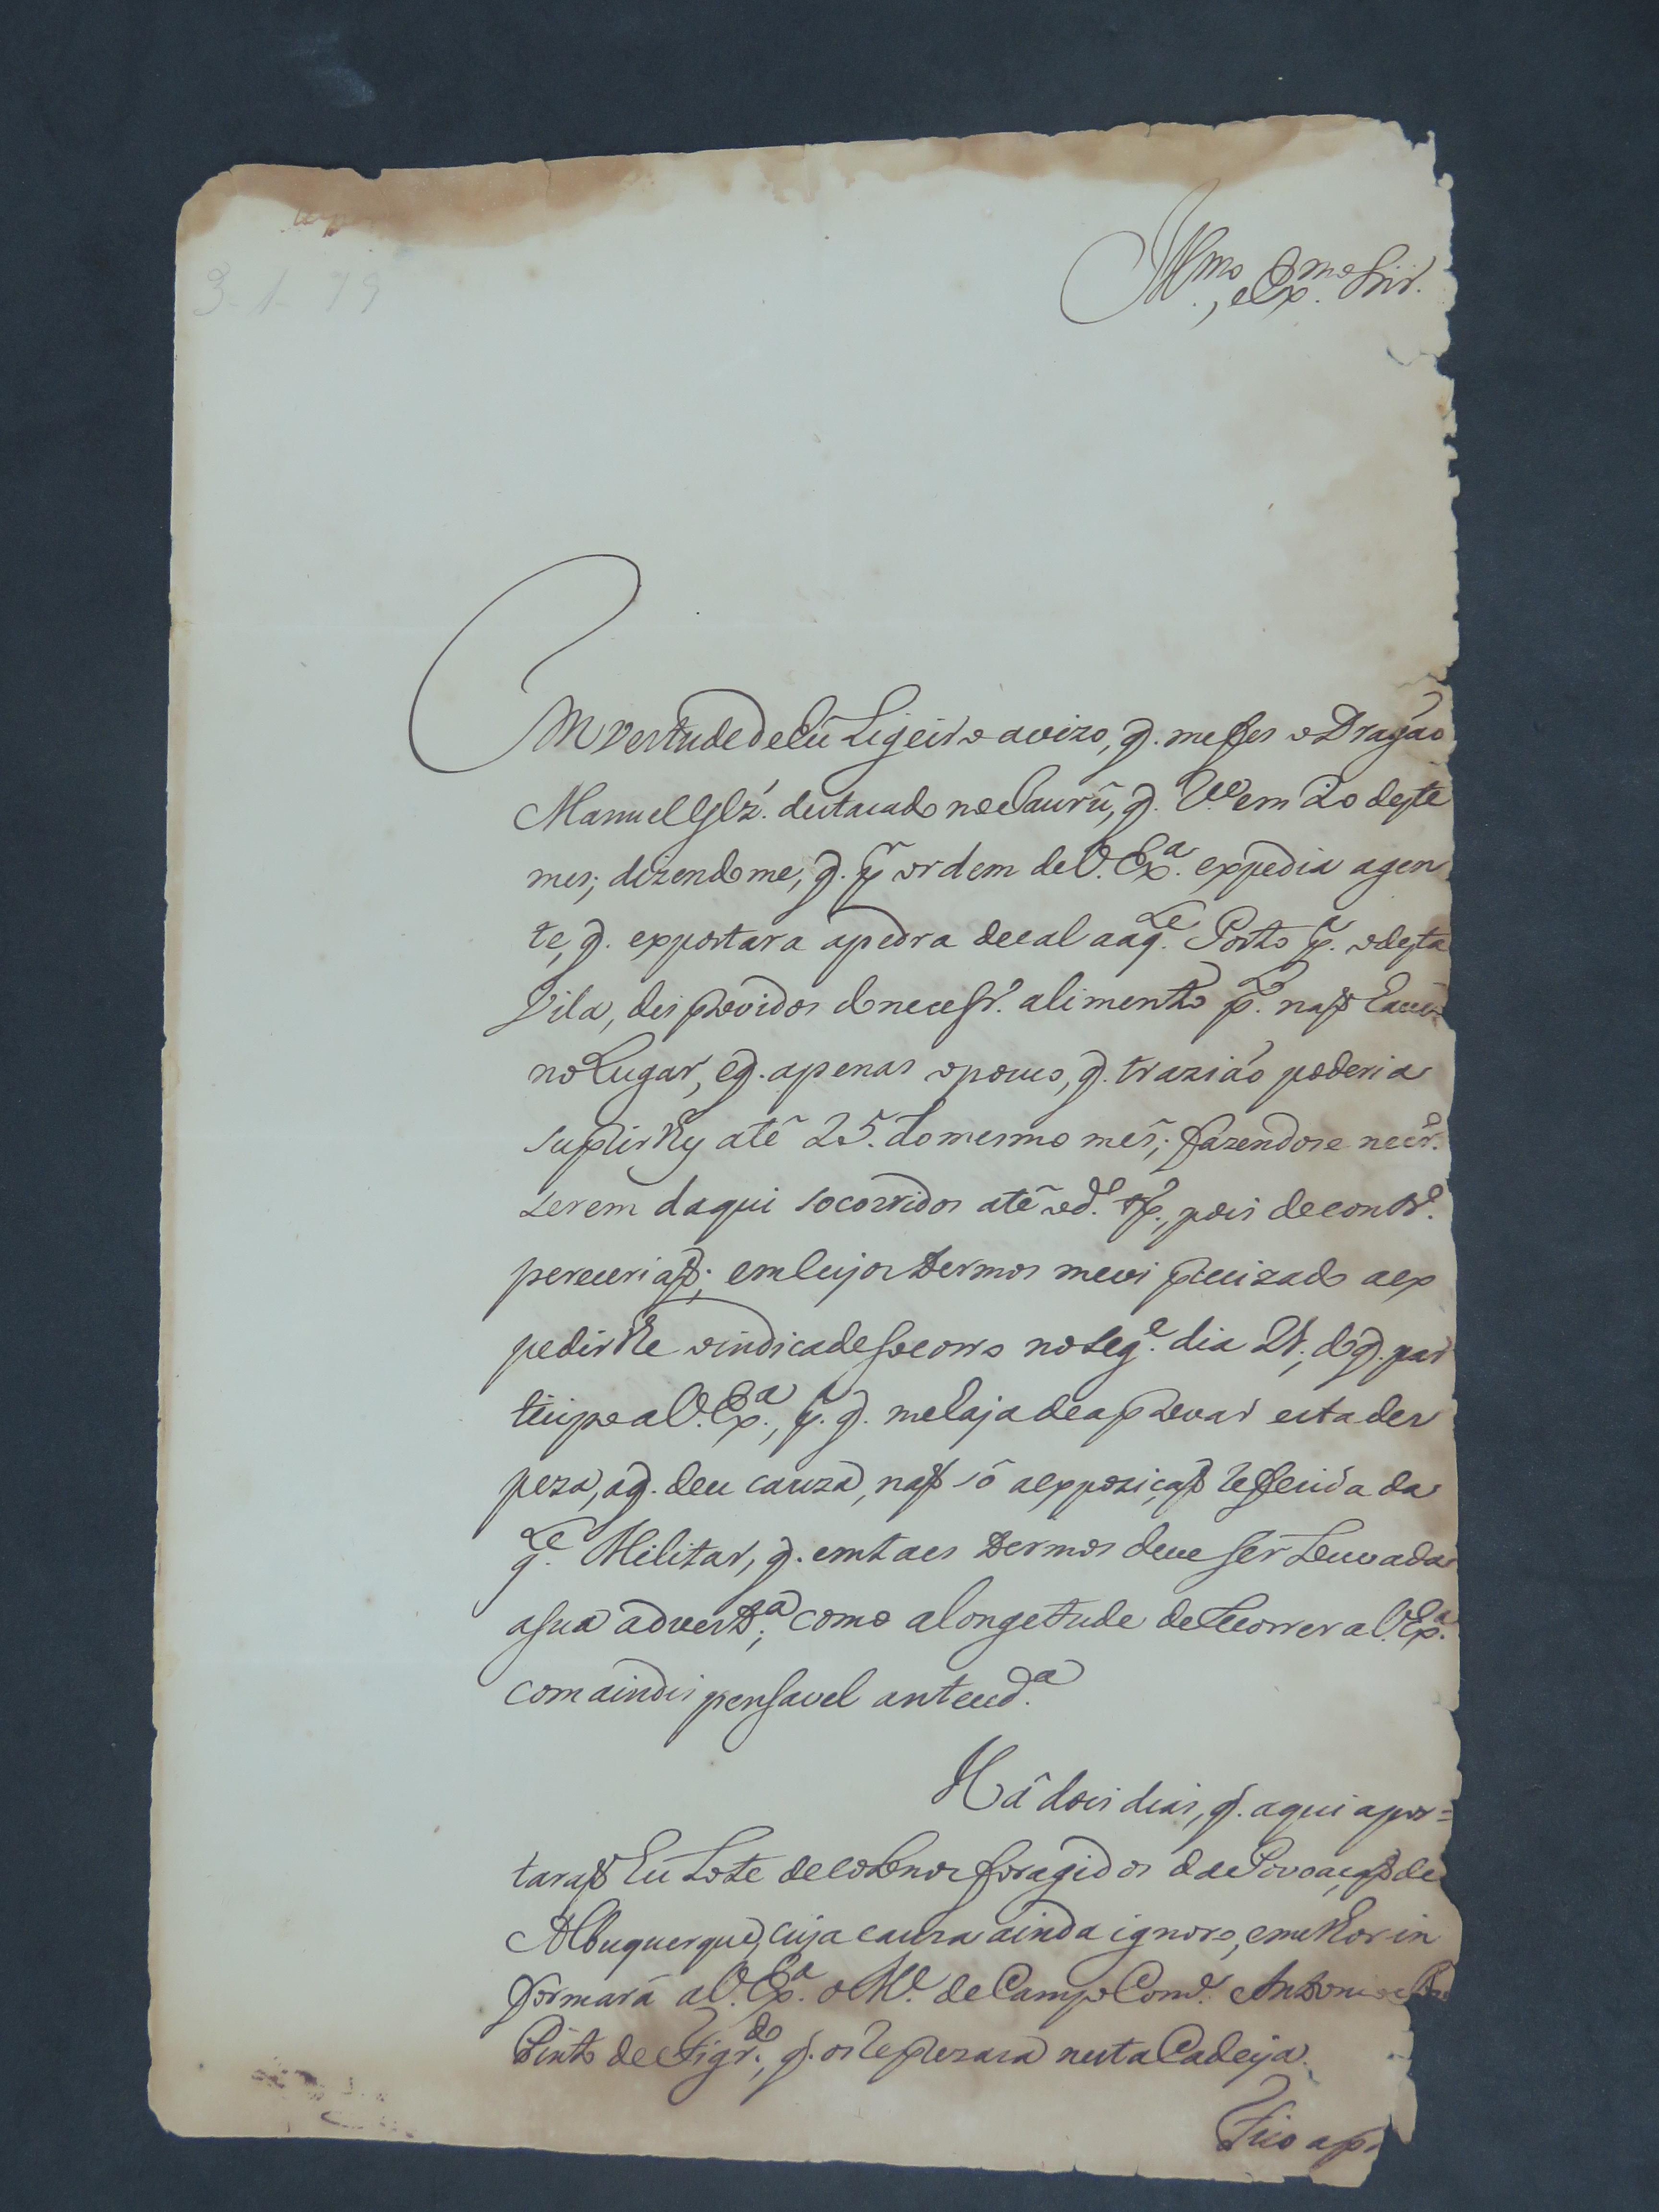 Illmo., e Exmo. Snr.
Em vertude de hũ Ligeiro avizo, q. me fes o Dragaõ
Manuel Glz'. destacado no Jaurû, q. Ve. em 20 deste
mes; dizendome, q. pr. ordem de V. Exa. expedia agen
te, q. exportara apedra decal aaqle. Porto pa. odesta
Vila, desprovidos do necessro. alimento po. naõ haver
no Lugar, eq. apenas opouco, q. traziaõ poderia
suplirlhes atê 25. domesmo mês; fazendose necero.
serem daqui socorridos atê od. , pois decontro.
pereceriaõ; emcujos termos mevi precizado aex
pedirlhe oindicadoSocorro noSege. dia 21; doq. par
ticipo aV. Exa., pa. q. mehaja deaprovar estades
peza, aq. deu cauza, naõ sô aexpoziçaõ referida da
qle. Militar, q. emtaes termos deve ser Louvada
asua adverta.; como alongetude deRecorrer aV. Exa.
comaindispensavel antecda.
Hâ dois dias, q. aqui apor=
taraõ hũ Lote decolonos foragidos da Povoaçaõ de
Albuquerque, cuja cauza ainda ignoro, emelhor in
formará aV. Exa. o Me. de Campo Come. Antonio
Pinto de Figrdo., q. os reprezara nesta Cadeya.
Fico ap